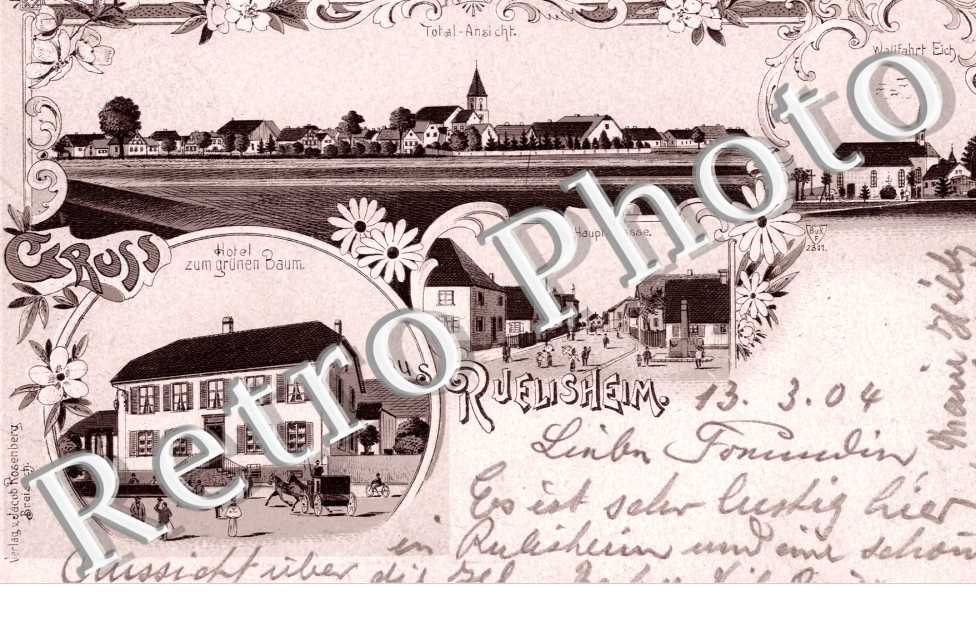 Total-Ansicht.
Wallfahrt Eich
GRUSS
Hôtel
zum grünen Baum.
Hauptstrasse.
aus
RUELISHEIM.
13. 3. 04
Liebe Freundin
Es ist sehr lustig hier
in Rulisheim und eine schön
Aussicht über die
Verlag v. Jacob Rosenberg
Retro Photo